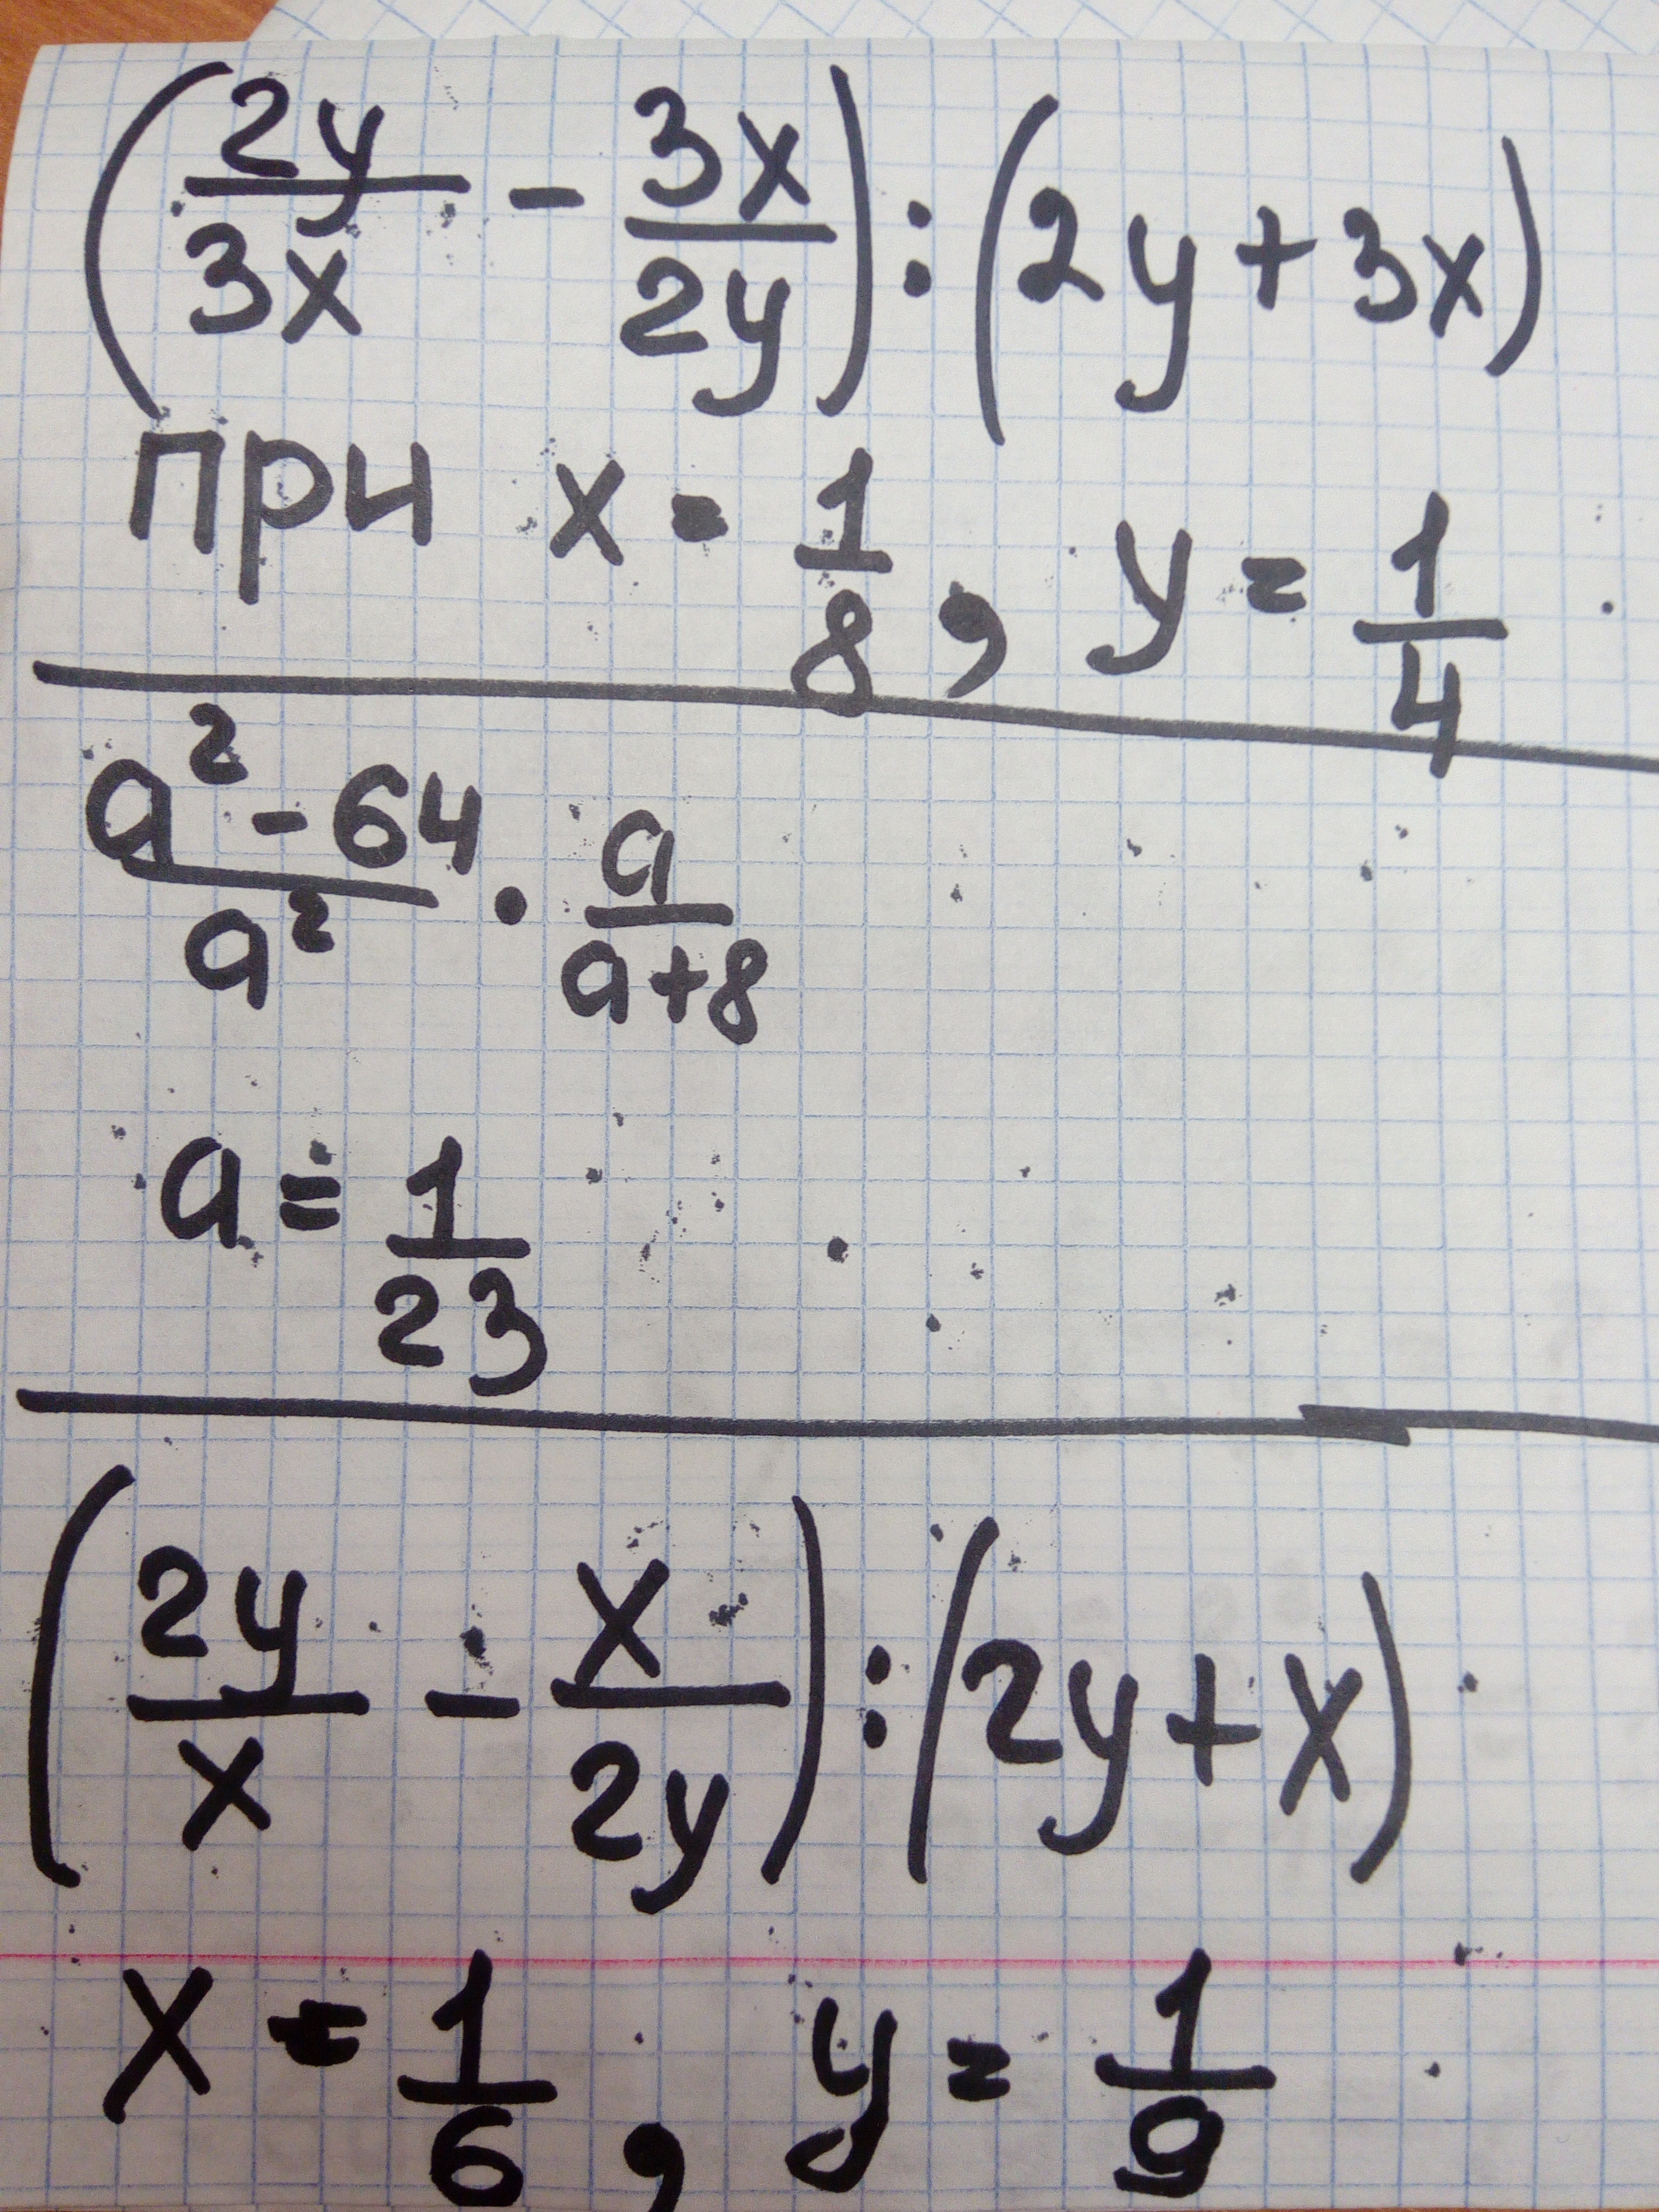 (2y/3x - 3x/2y) : (2y + 3x)
при x = 1/8, y = 1/4
a² - 64/a² · a/a+8
a = 1/23
(2y/x - x/2y) : (2y + x)
x = 1/6, y = 1/9